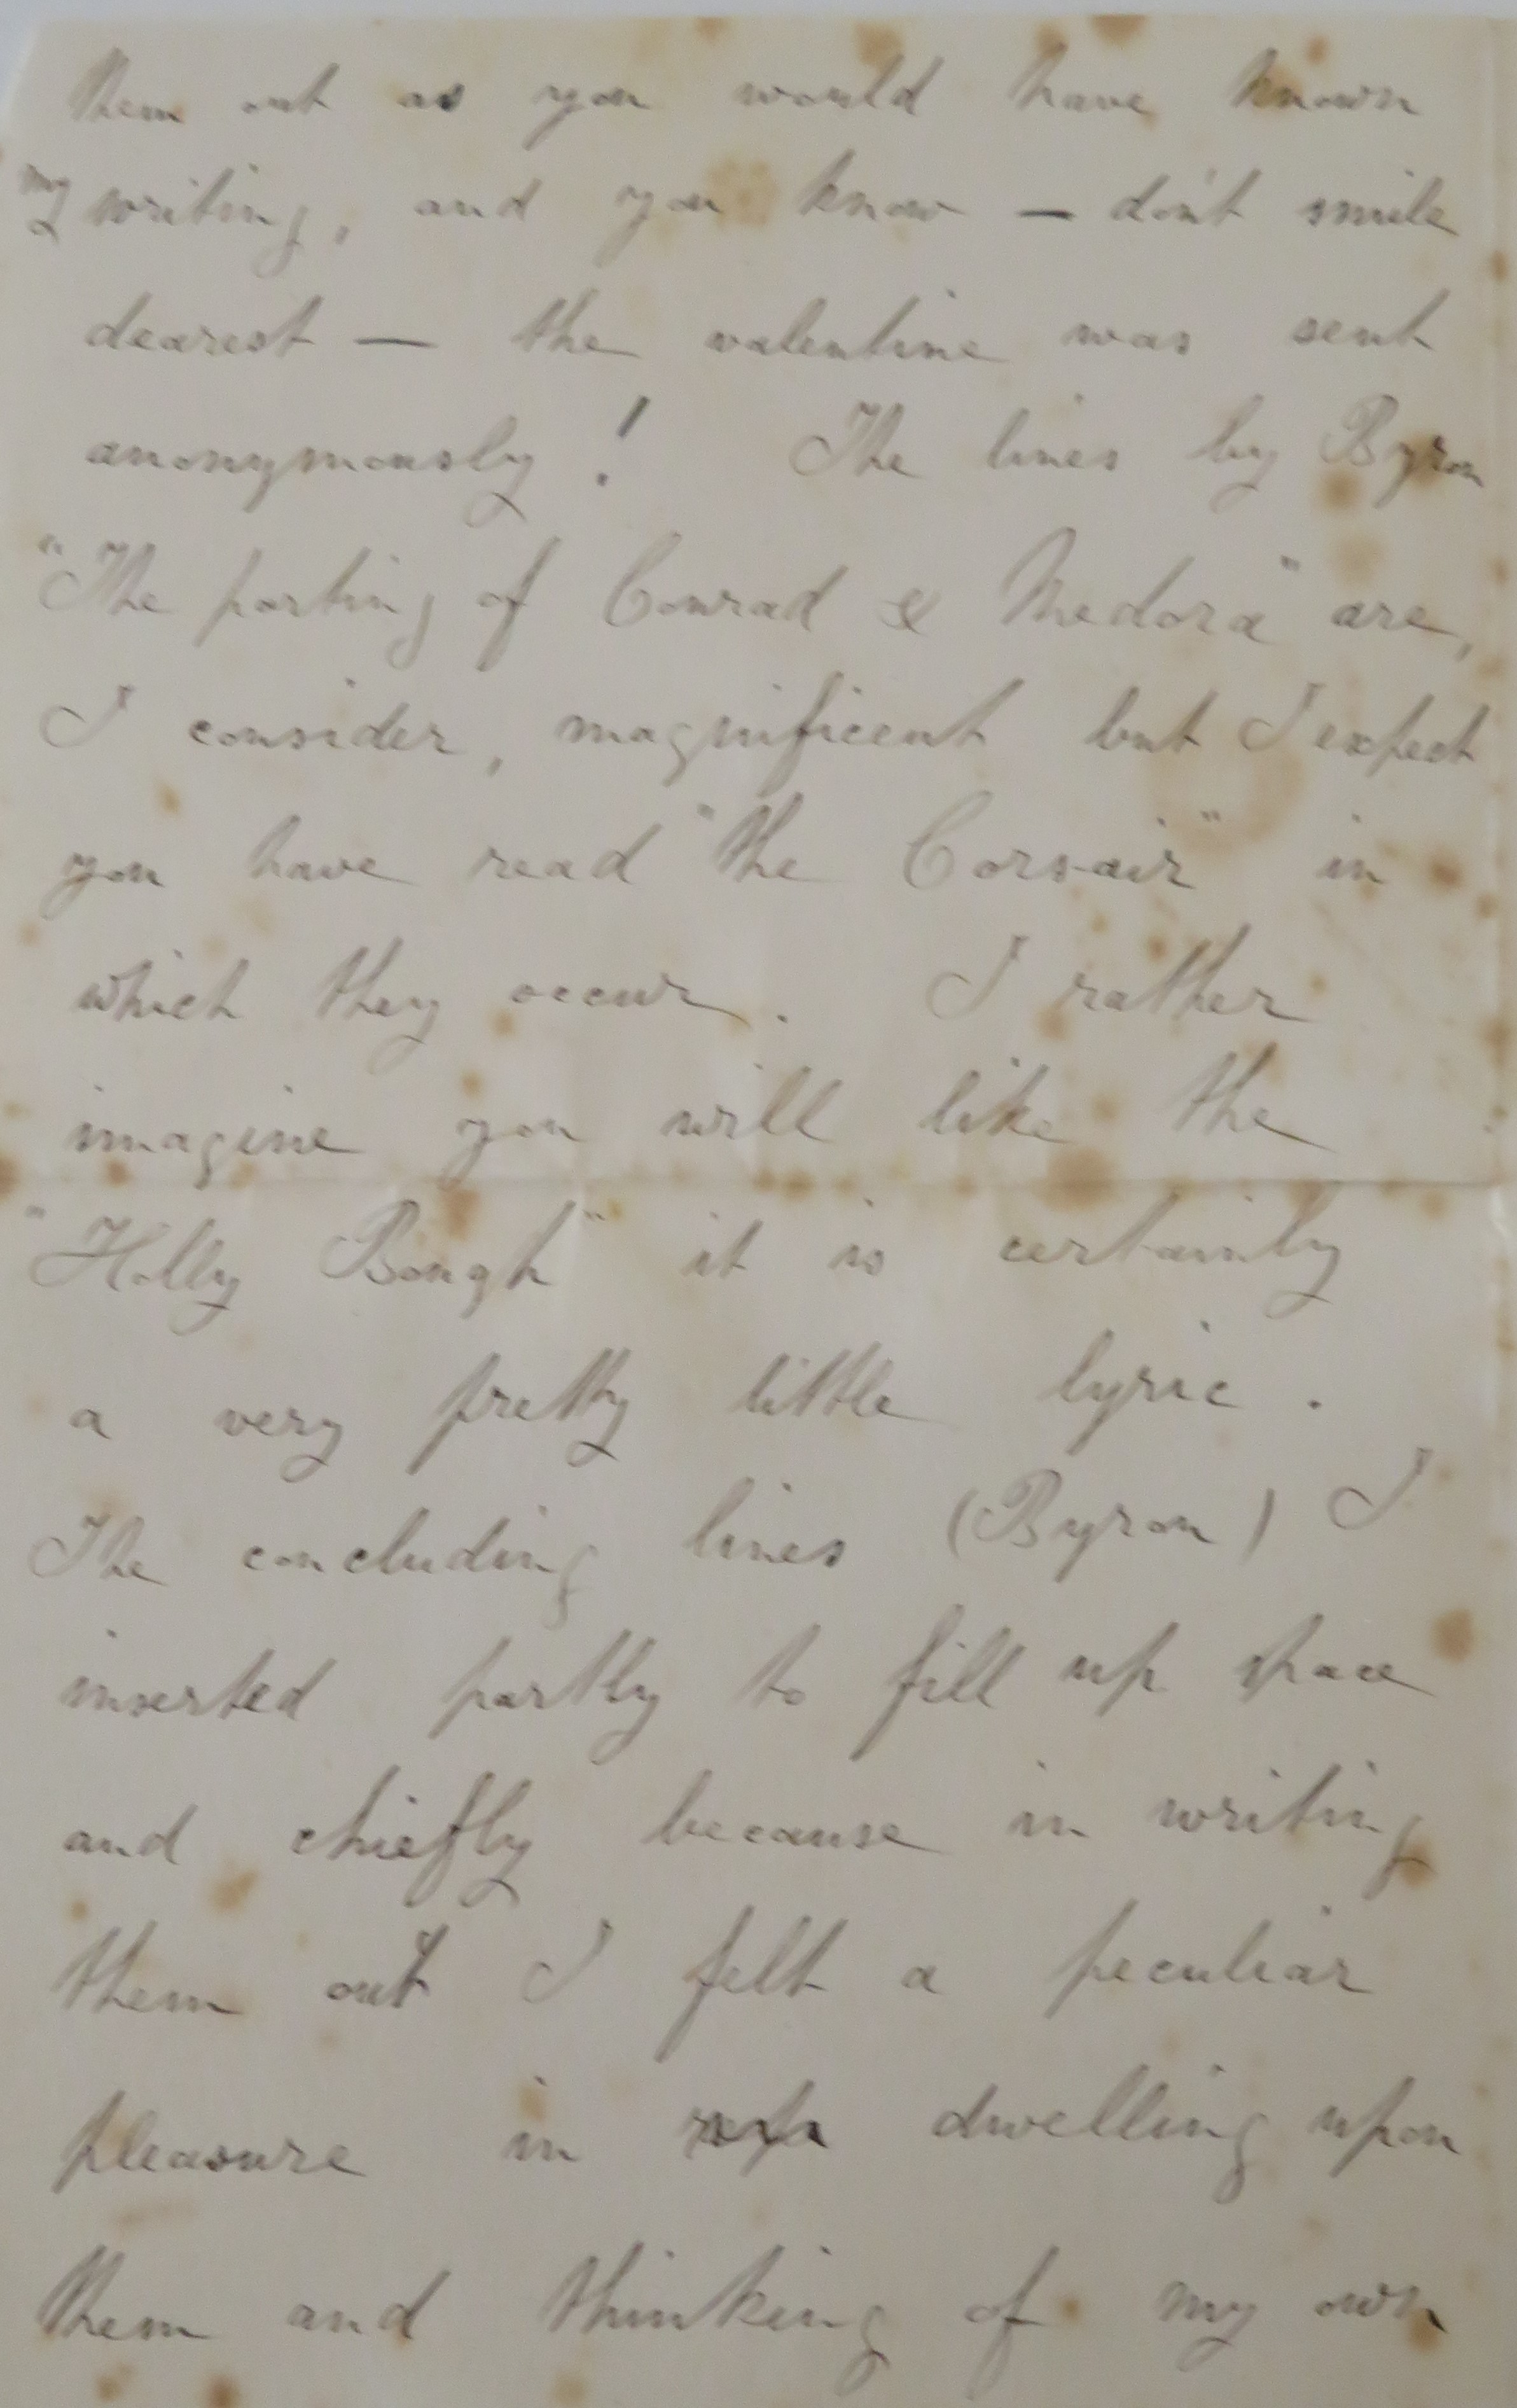 them out as you would have known
my writing, and you know — don't smile
dearest — the valentine was sent
anonymously! The lines by Byron
"The parting of Conrad & Medora" are,
I consider, magnificent but I expect
you have read "the Corsair" in
which they occur. I rather
imagine you will like the
"Holly Bough" it is certainly
a very pretty little lyric.
The concluding lines (Byron) I
inserted partly to fill up space
and chiefly because in writing
them out I felt a peculiar
pleasure in dwelling upon
them and thinking of my own